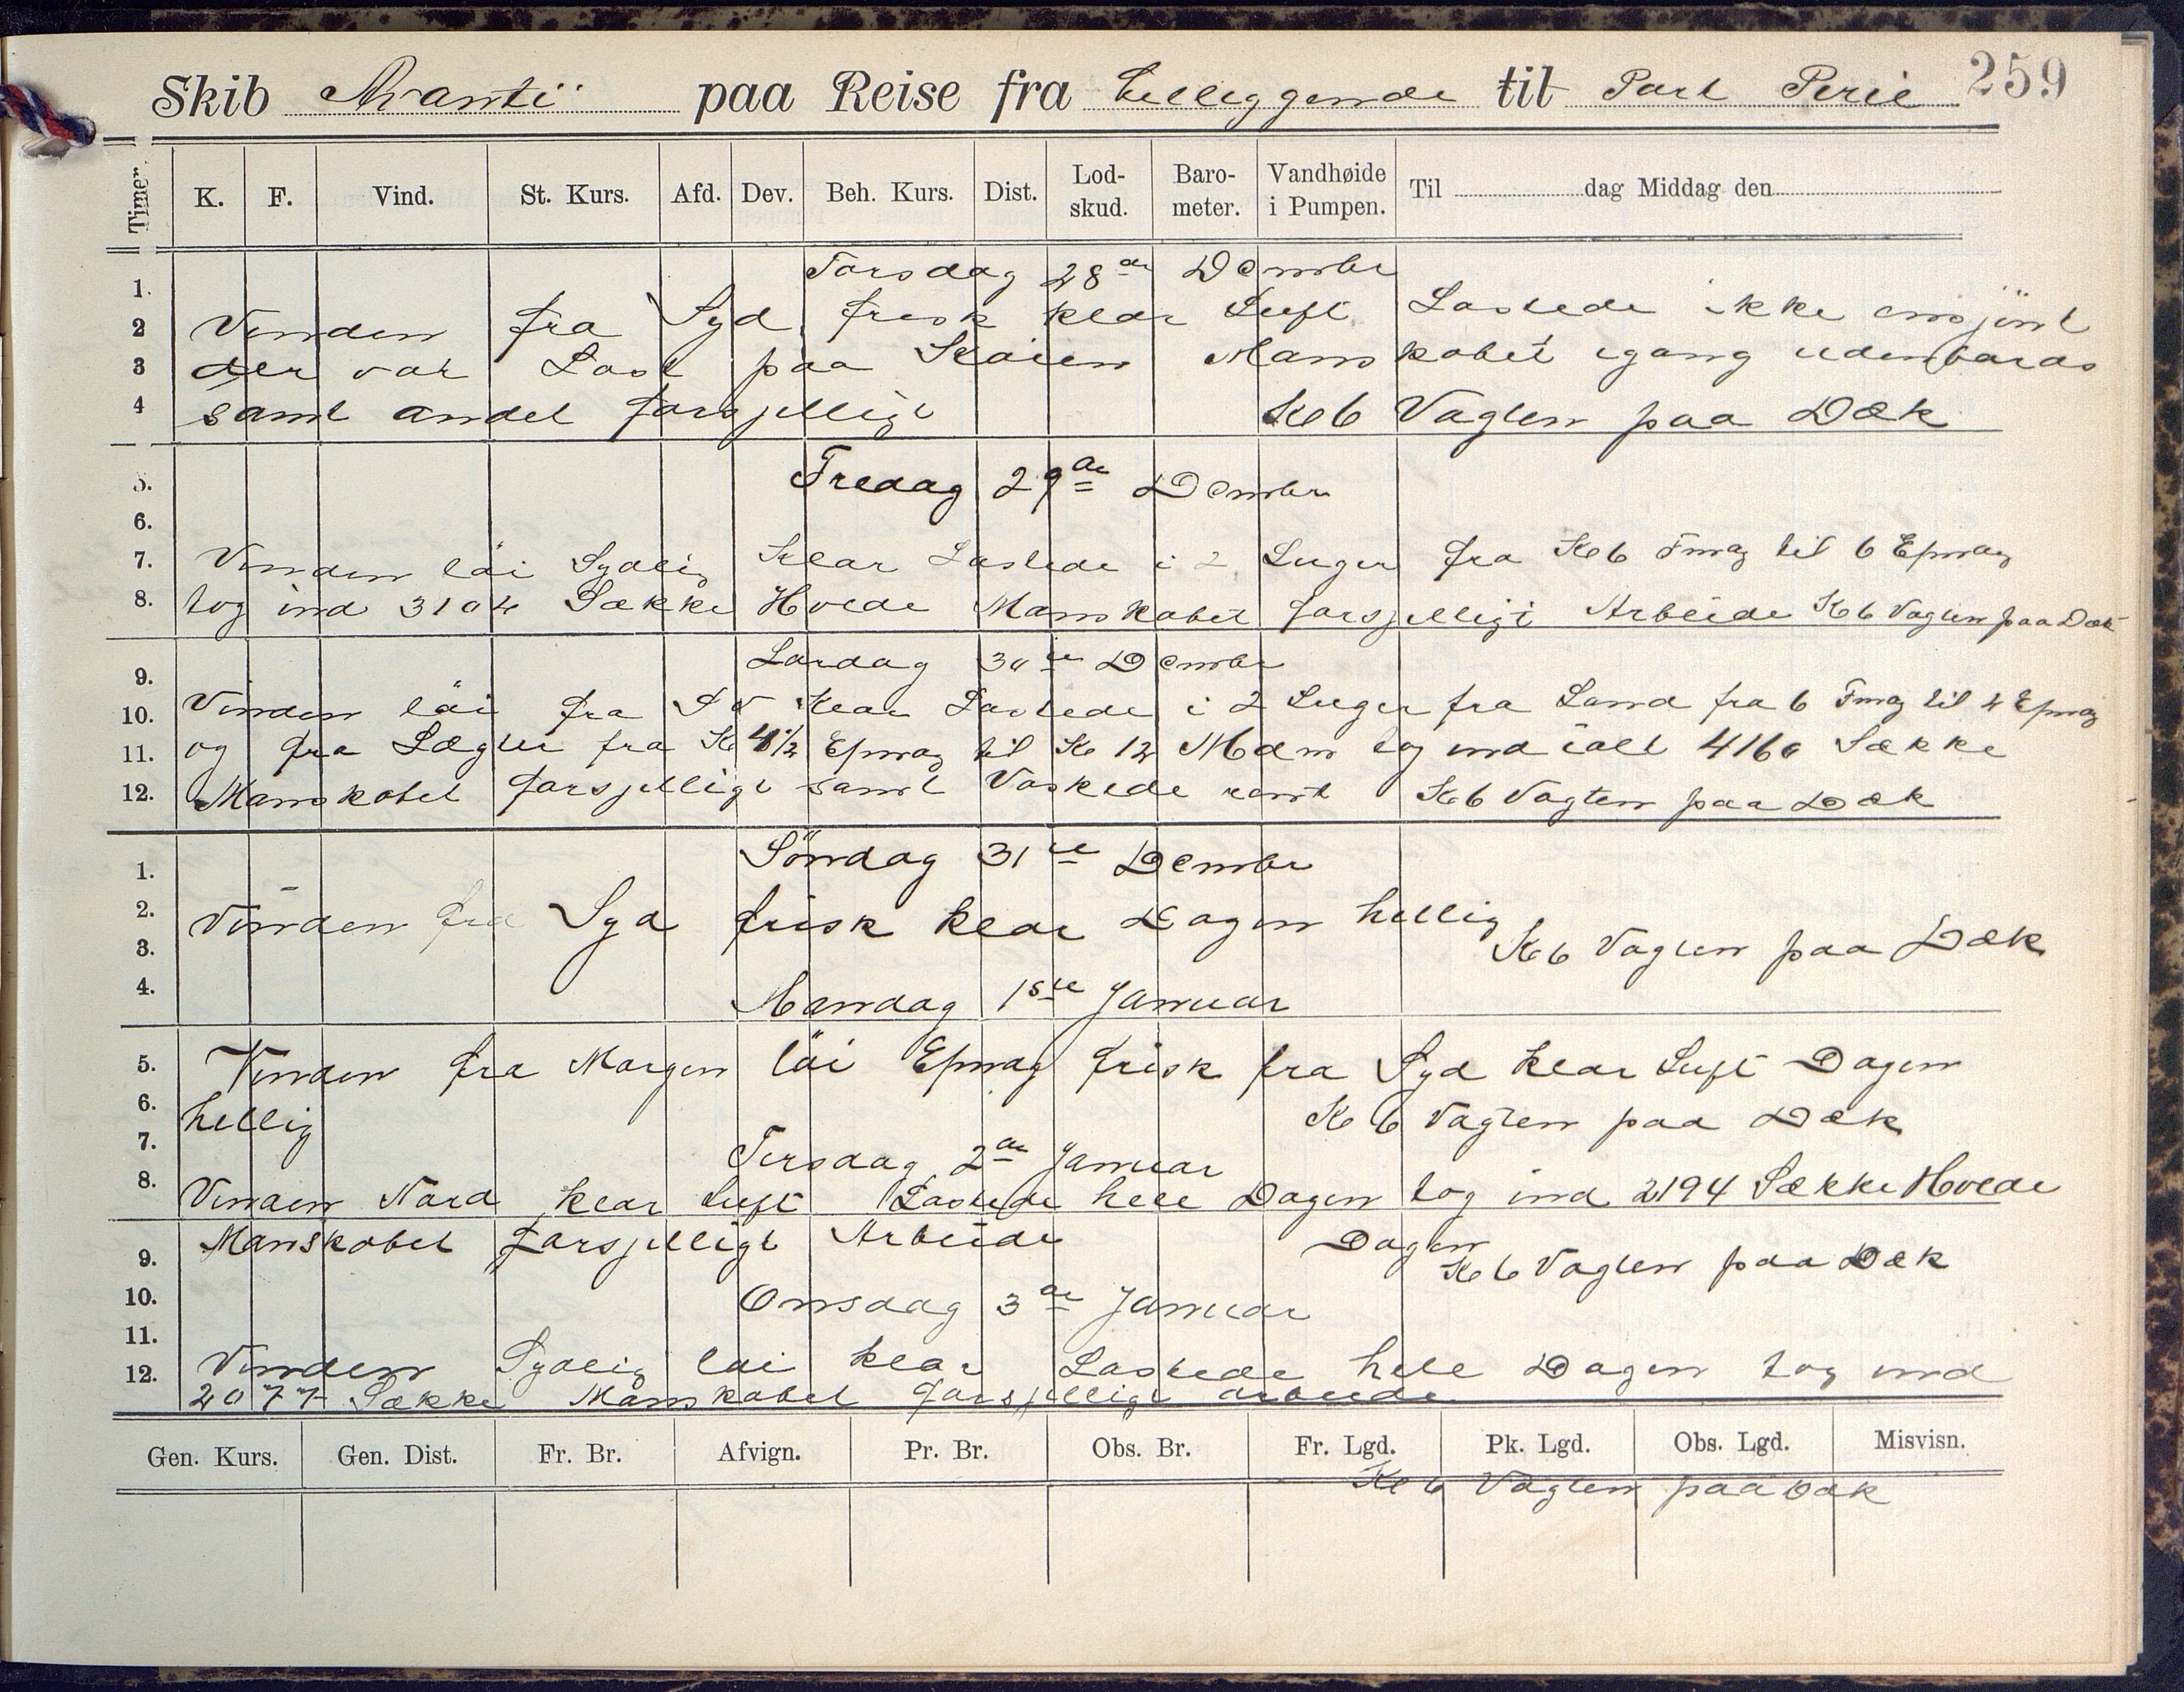 259
Skib Avanti paa Reise fra Lilliggende til Port Perie
Timer. K. F. Vind. St. Kurs. Afd. Dev. Beh. Kurs. Dist. Lod-skud. Baro-meter. Vandhøide i Pumpen. Til dag Middag den
Torsdag 28de Dembr
1.
2 Vinden fra Syd, frisk klar Luft Lastede ikke ensjönt
3 der var Last paa Kaien Manskabet igang udenbords
4 samt andet forsjelligt Kl 6 Vagten paa Dæk
5. Fredag 29de Dembr
6.
7. Vinden löi Sydlig Klar Lastede i 2 Luger fra Kl 6 Fmag til 6 Epmag
8. tog ind 3104 Sække Hvede Manskabet forsjelligt Arbeide Kl 6 Vagten paa Dæk
9. Lördag 30te Dembr
10. Vinden löi fra SV Klar Lastede i 2 Luger fra Land fra 6 Fmag til 4 Epmag
11. og fra Lægter fra Kl 4 1/2 Epmag til Kl 12 tog ind ialt 4160 Sække
12. Manskabet forsjelligt samt Vaskede rent Kl 6 Vagten paa Dæk
1. Söndag 31te Dembr
2. Vinden fra Syd frisk klar Dagen hellig
3. Kl 6 Vagten paa Dæk
4. Mandag 1ste Januar
5. Vinden fra Morgen löi Epmag frisk fra Syd klar Luft Dagen
6. hellig Kl 6 Vagten paa Dæk
7. Tirsdag 2de Januar
8. Vinden Nord klar Luft Lastede hele Dagen tog ind 2194 Sække Hvede
Manskabet forsjelligt Arbeide Dagen
9. Kl 6 Vagten paa Dæk
10. Onsdag 3de Januar
11.
12. Vinden Sydlig löi klar Lastede hele Dagen tog ind
2077 Sække Manskabet forsjelligt arbeide
Gen. Kurs. Gen. Dist. Fr. Br. Afvign. Pr. Br. Obs. Br. Fr. Lgd. Pk. Lgd. Obs. Lgd. Misvisn.
Kl 6 Vagten paa Dæk